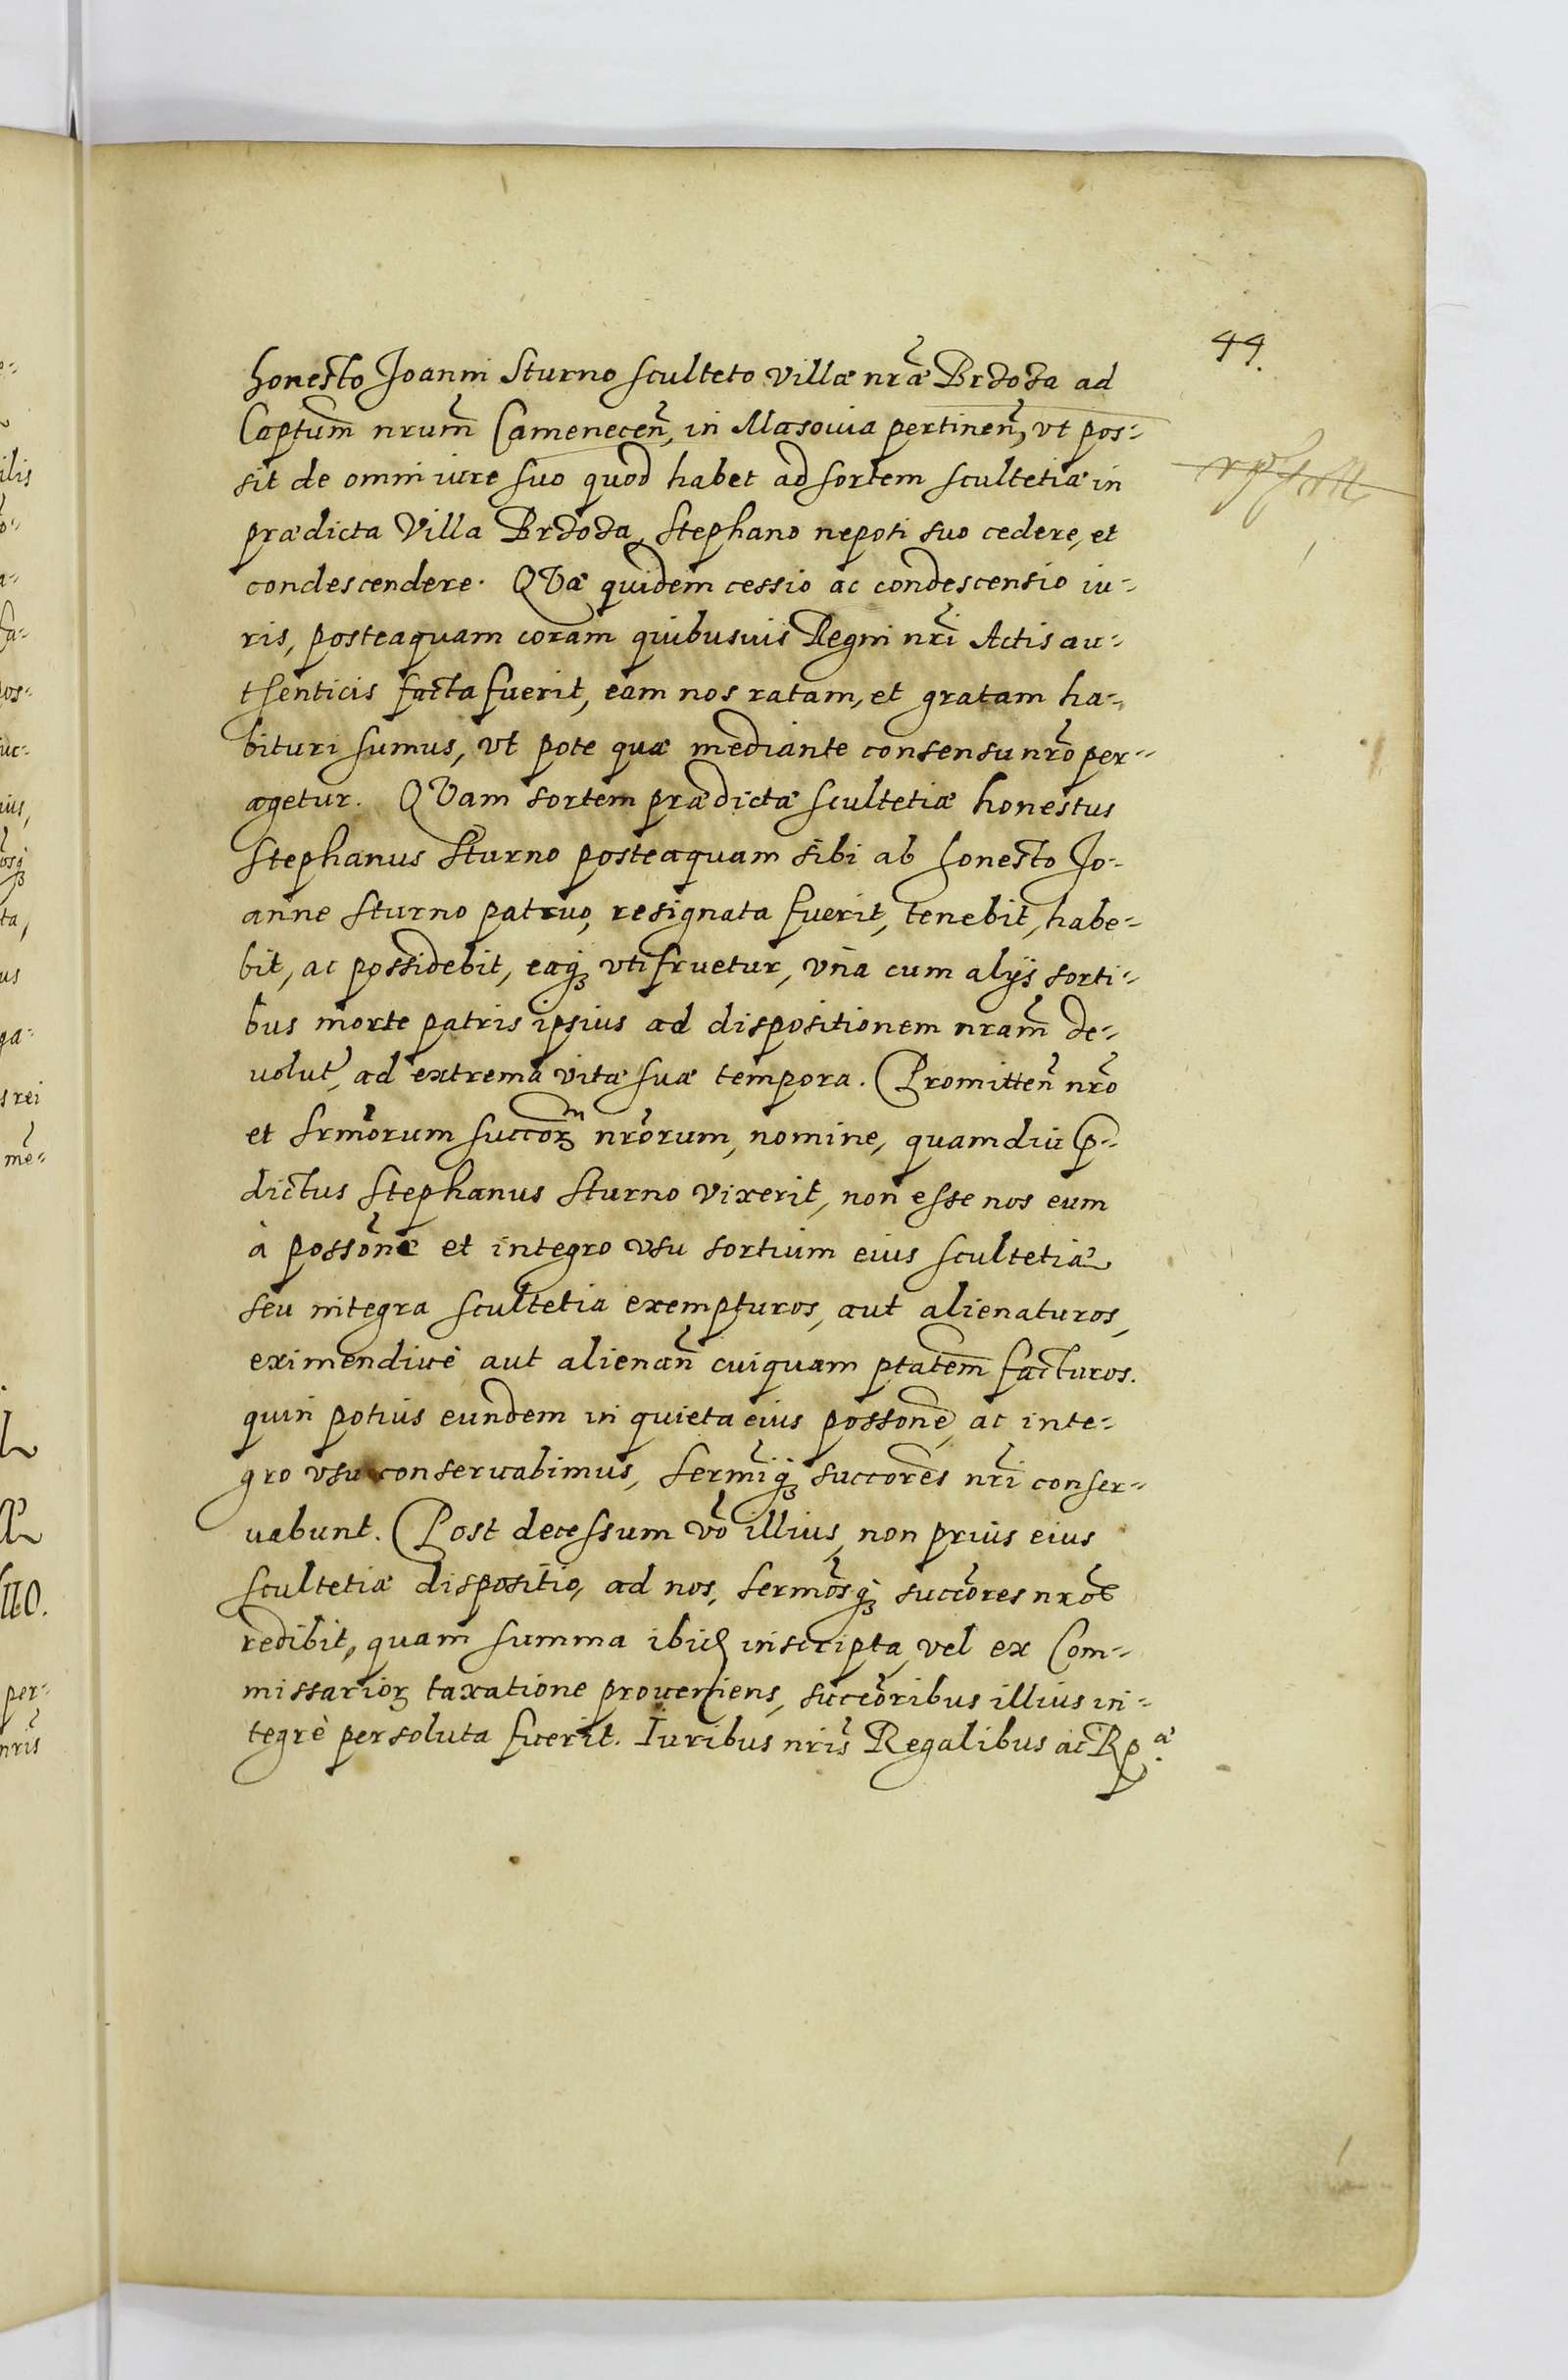 44.
honesto Joanni Sturno sculteto villæ nr̃æ Brdoda ad
Captum̃ nrum̃ Camenecen̄, in Masouia pertinen̄, vt pos-
sit de omni iure suo quod habet ad sortem scultetiæ in
prædicta Villa Brdoda, Stephano nepoti suo cedere, et
condescendere. QVæ quidem cessio ac condescensio iu-
ris, posteaquam coram quibusuis Regni nr̃i Actis au-
thenticis facta fuerit, eam nos ratam, et gratam ha-
bituri sumus, vt pote quæ mediante consensu nr̃o per-
agetur. QVam sortem prædictæ scultetiæ honestus
Stephanus Sturno posteaquam sibi ab honesto Jo-
anne Sturno patruo, resignata fuerit, tenebit, habe-
bit, ac possidebit, eaqꝫ vtifruetur, vna cum alijs sorti-
bus morte patris ipsius ad dispositionem nram̃ de-
uolut̃, ad extrema vitæ suæ tempora. Promitten̄ nr̃o
et Srm̃orum succorꝫ nr̃orum, nomine, quamdiu p̄-
dictus Stephanus Sturno vixerit, non esse nos eum
à possõne et integro vsu sortium eius scultetiæ
seu integra scultetia exempturos, aut alienaturos,
eximendiuè aut alienan̄ cuiquam ptatem̄ facturos.
quin potius eundem in quieta eius possone, ac inte-
gro vsu conseruabimus, Serm̃iqꝫ succores nr̃i conser-
uabunt. Post decessum võ illius, non priùs eius
scultetiæ dispositio, ad nos, Sermõsqꝫ succõres nr̃os
redibit, quam summa ibid inscripta, vel ex Com-
missariorꝫ taxatione proueniens, succõribus illius in-
tegrè persoluta fuerit. Iuribus nr̃is Regalibus ac Rp.æ